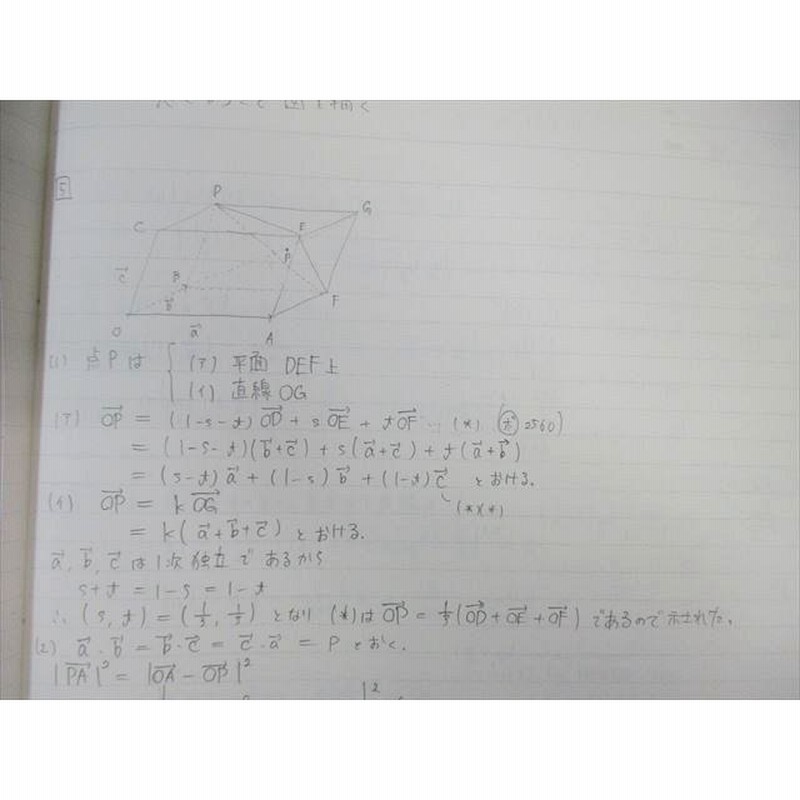 5
D G
C E
P
c B
b F
O a A
(1) 点Pは (ア) 平面 DEF上
(イ) 直線OG
(ア) OP = (1-s-t)OD + sOE + tOF … (*) 2560)
= (1-s-t)(b+c) + s(a+c) + t(a+b)
= (s-t)a + (1-s)b + (1-t)c とおける。
(**)
(イ) OP = kOG
= k(a+b+c) とおける。
a, b, c は1次独立であるから
s+t = 1-s = 1-t
∴ (s, t) = (1/3, 1/3) となり (*)は OP = 1/3(OD+OE+OF) であるので示された。
(2) a・b = b・c = c・a = P とおく。
|PA|² = |OA - OP|²